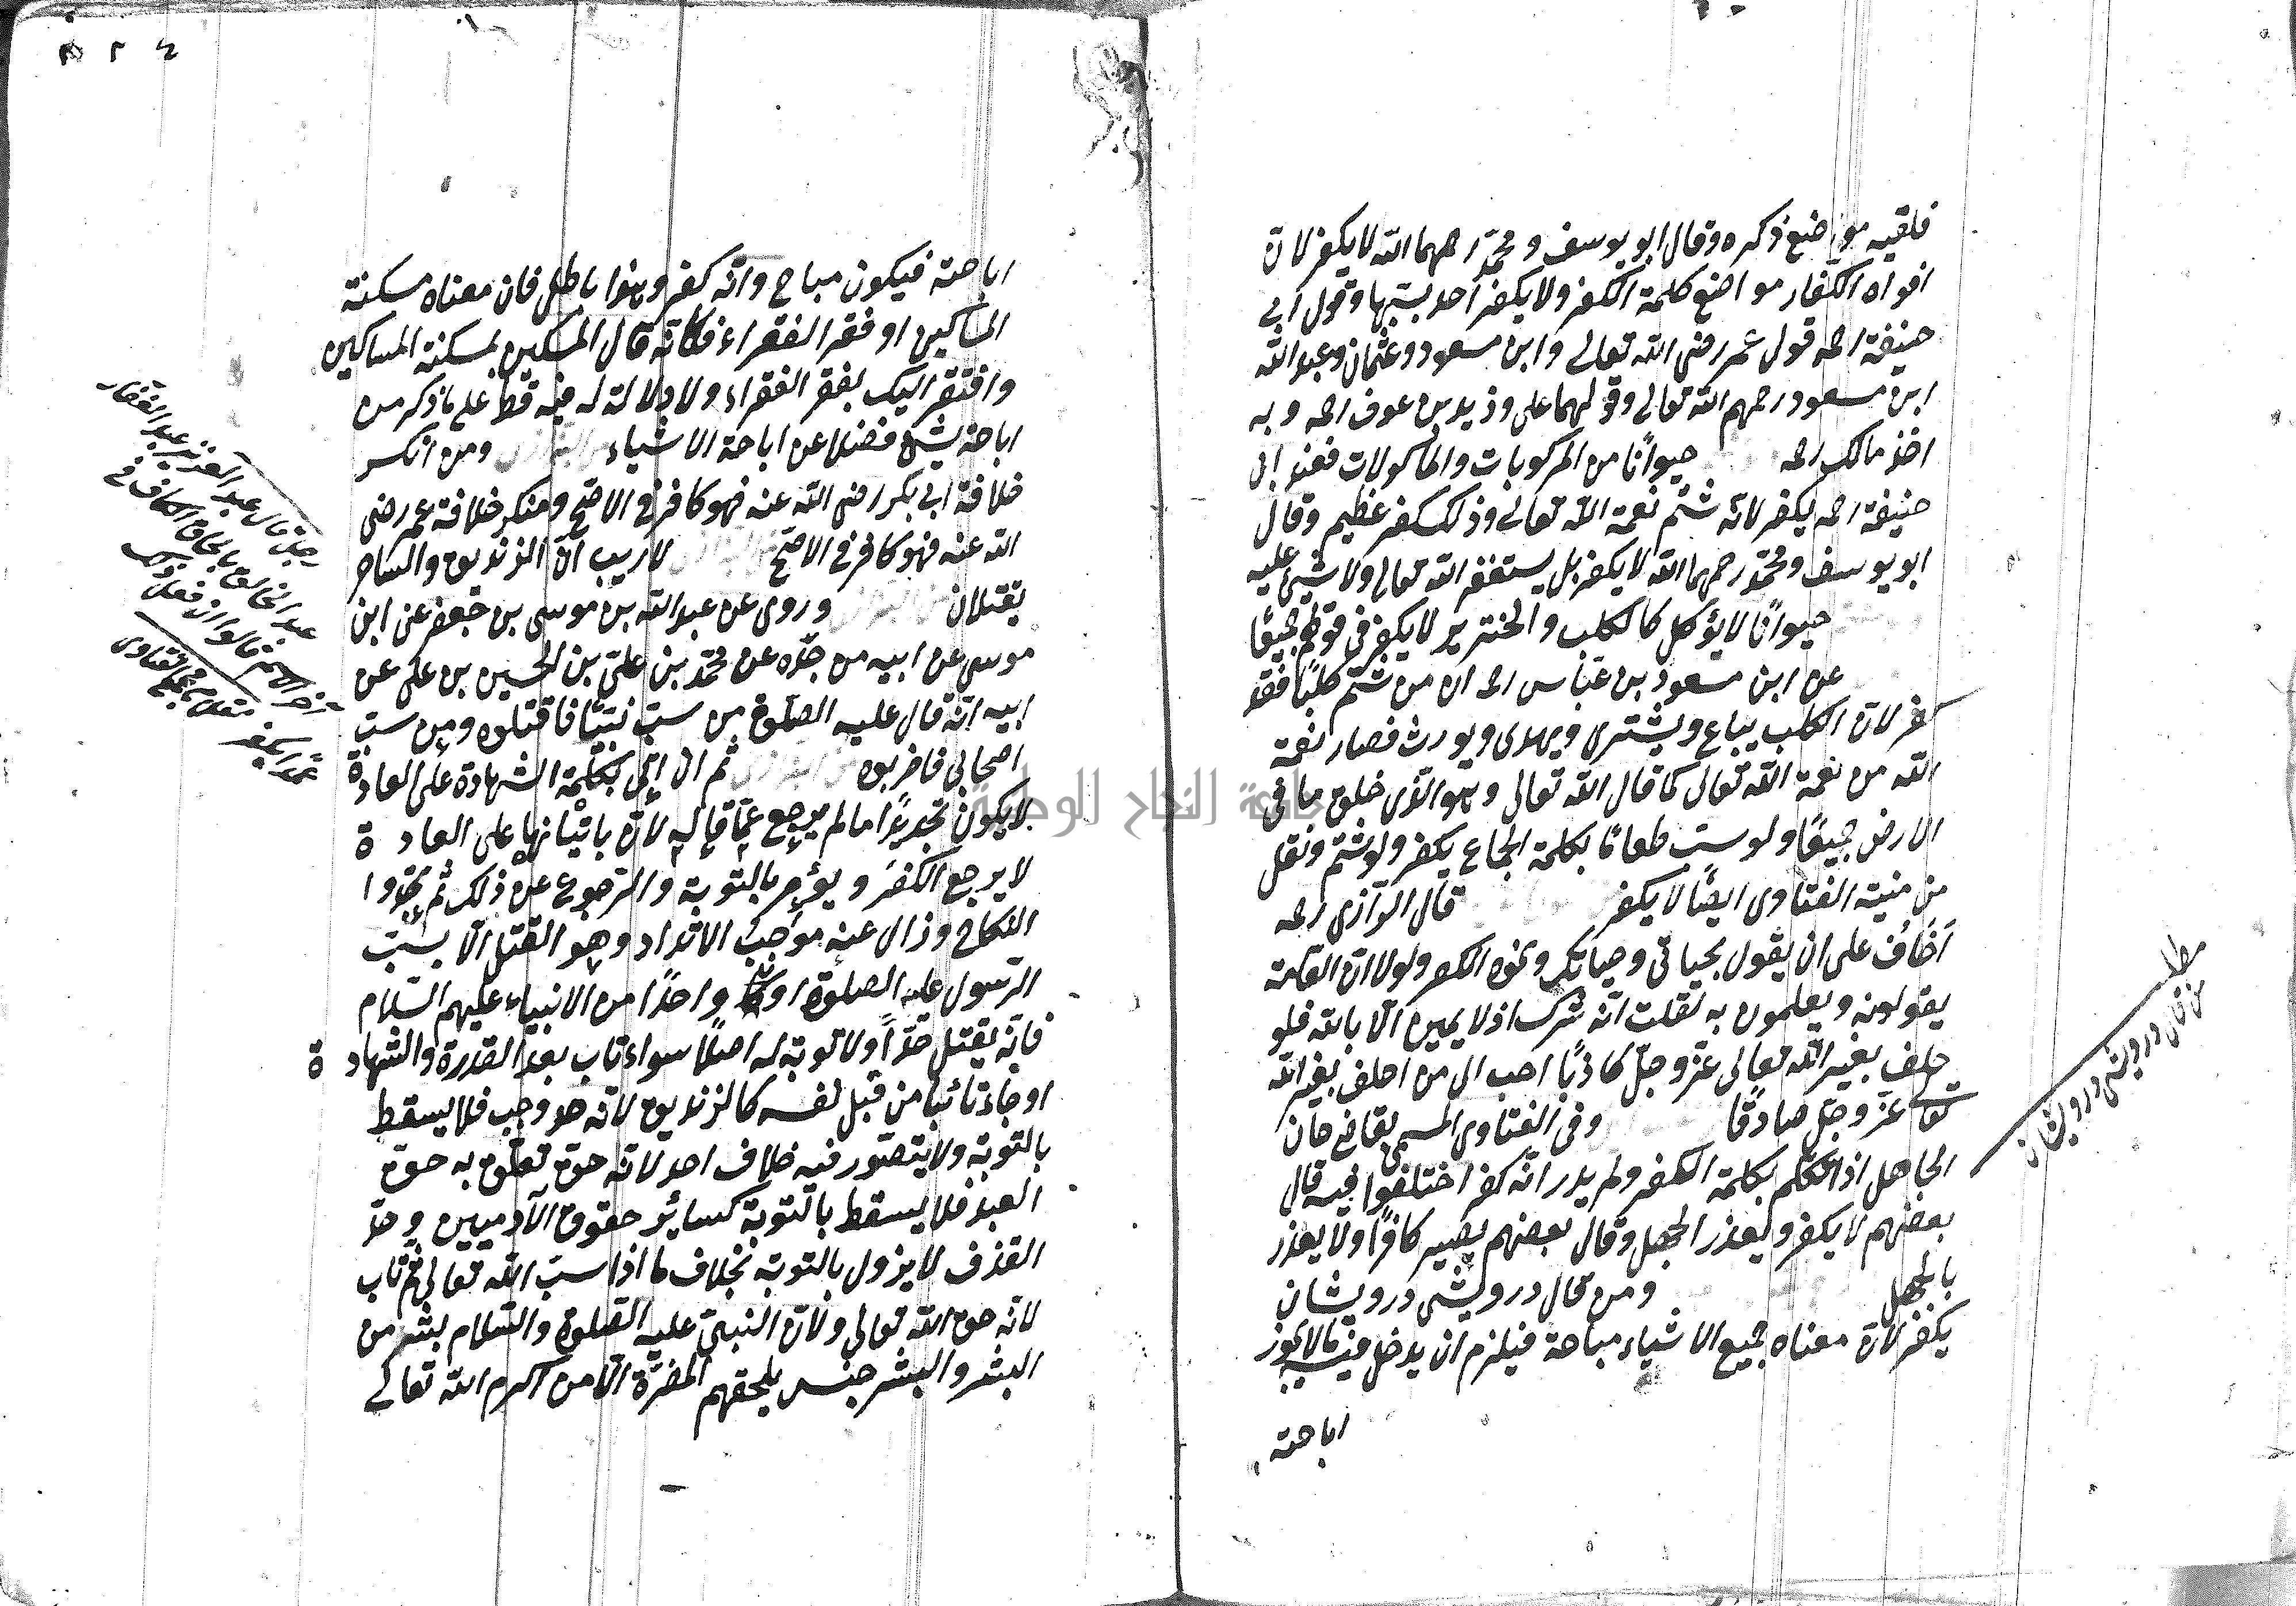 فلقيه مواضع ذكره وقال ابو يوسف ومحمّد رحمهما الله لا يكفر لانّ
افواه الكفار مواضع كلمة الكفر ولا يكفر احد بسبّها وقول ابي
حنيفة رحمه قول عمر رضى الله تعالى وابن مسعود وعثمان وعبد الله
ابن مسعود رحمهم الله تعالى وقولهما على وزيد بن عوف رحمه وبه
اخذ مالك رحمه حيوانًا من المركوبات والمأكولات فعند ابى
حنيفة رحمه يكفر لانّه شتم نعمة الله تعالى وذلك كفر عظيم وقال
ابو يوسف ومحمّد رحمهما الله لا يكفر بل يستغفر الله تعالى ولا شيئ عليه
حيوانًا لا يؤكل كالكلب والخنزير لا يكفر فى قولهم جميعًا
عن ابن مسعود بن عبّاس رحمه ان من شتم كلبًا فقد
كفر لانّ الكلب يباع ويشترى ويهدى ويورث فصار نعمة
الله من نعمة الله تعالى كما قال الله تعالى وهو الّذى خلق ما فى
الارض جميعًا ولو سب طعامًا بكلمة الجماع يكفر ولو شتم ونقل
من منية الفتاوى ايضًا لا يكفر قال الرّازى رحمه
اَخَافُ على ان يقول بحياتى وحياتك ونحوه الكفر ولولا انّ العامّة
يقولونه ويعلمون به لقلت انّه شرك اذ لا يمين الّا بالله فلو
حلف بغير الله تعالى عزّ وجلّ كاذبًا احب الى من احلف بغير الله
تعالى عزّ وجلّ صادقًا وفى الفتاوى المسمى بقاضى خان
الجاهل اذا تكلم بكلمة الكفر ولم يدر انّه كفر اختلفوا فيه قال
بعضهم لا يكفر ويعذر الجهل وقال بعضهم يصير كافرًا ولا يعذر
بالجهل ومن قال درويشى درويشان
يكفر لانّ معناه جميع الاشياء مباحة فيلزم ان يدخل فيه ما لا يجوز
اباحته
مطلب
من قال درويشى درويشان
٢٢٤
اباحته فيكون مباح وانّه كفر وهذا باطل فان معناه مسكنة
المساكين او فقر الفقراء فكانّه قال المسكين بمسكنة المساكين
وافتقر اليك بفقر الفقراء ولا دلالة له فيه قط على ما ذكر من
اباحة شيئ فضلا عن اباحة الاشياء ومن انكر
خلافة ابى بكر رضى الله عنه فهو كافر فى الاصّح ومنكر خلافة عمر رضى
الله عنه فهو كافر فى الاصّح لا ريب انّ الزنديق والساحر
يقتلان وروى عن عبد الله بن موسى بن جعفر عن ابن
موسى عن ابيه من جدّه عن محمّد بن علىّ بن الحسين بن على عن
ابيه انّه قال عليه الصلوة من سبّ نبيًّا فاقتلوه ومن سب
اصحابى فاضربوه ثم ان اتى بكلمة الشهادة على العادة
لا يكون تجديدًا ما لم يرجع عمّا قاله لانّ باتيانها على العادة
لا يرجع الكفر ويؤمر بالتوبة والرّجوع عن ذلك ثم يجدّدوا
النكاح وزال عنه موجب الارتداد وهو القتل الّا بسبّ
الرّسول عليه الصلوة او واحدًا من الانبياء عليهم السّلام
فانّه يقتل حدًّا ولا توبة له اصلًا سواء تاب بعد القدرة والشهادة
او جاء تائبا من قبل نفسه كالزنديق لانّه حد وجب فلا يسقط
بالتوبة ولا يتصوّر فيه خلاف احد لانّه حق تعلّق به حق
العبد فلا يسقط بالتّوبة كسائر حقوق الآدميين وحدّ
القذف لا يزول بالتوبة بخلاف ما اذا سبّ الله تعالى ثم تاب
لانّه حق الله تعالى ولانّ النبىّ عليه الصّلوة والسّلام بشر من
البشر والبشر جنس يلحقهم المضرّة الّا من اكرم الله تعالى
رجل قال عبد العزيز عبد الغفار
عبد الخالق بالحاق الكاف فى
آخر الاسم قالوا ان فعل ذلك
عمدًا يكفر نقل من مجمع الفتاوى
جامعة النجاح الوطنية